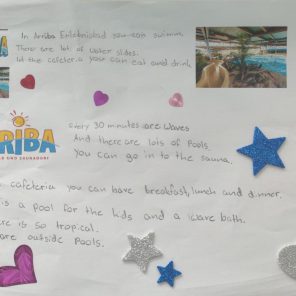 In Arriba Erlebnisbad you can swimm.
There are lots of water slides.
At the cafeteria your can eat and drink
RIBA
D UND SAUNADORF
every 30 minutes are waves
And there are lots of Pools.
You can go in to the sauna.
cafeteria you can have breakfast, lunch and dinner.
is a pool for the kids and a wave bath.
re is so tropical.
are outside Pools.